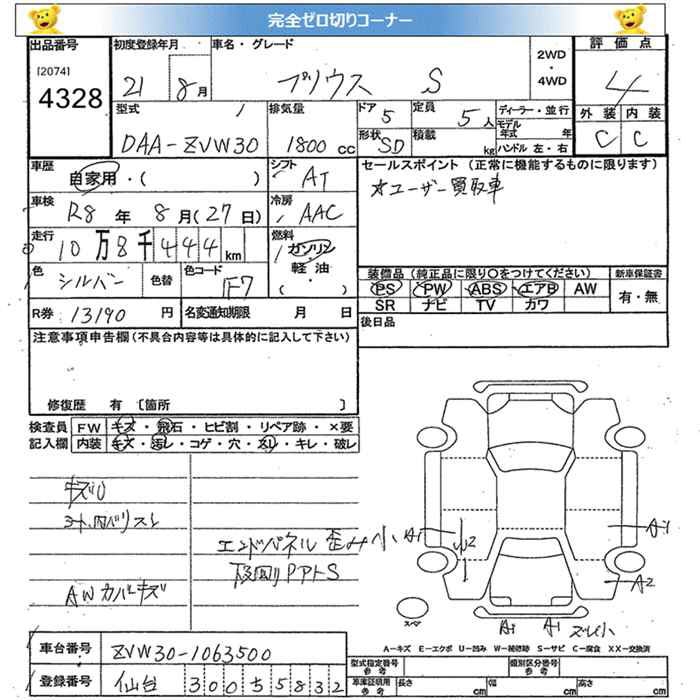 完全ゼロ切りコーナー
出品番号 初度登録年月 車名・グレード 評価点
[2074]
4328 21 8月 プリウス S 2WD・4WD 4
外装 内装
C C
型式 排気量 ドア 5 定員 5人 ディーラー・並行
DAA-ZVW30 1800cc 形状 SD 積載 kg モデル年式 年
ハンドル 左・右
車歴 自家用・( ) シフト AT
セールスポイント (正常に機能するものに限ります)
*ユーザー買取車
車検 R8年 8月(27日) 冷房 AAC
走行 10万8千444km 燃料 ガソリン・軽油・( )
色 シルバー 色替 色コード 1F7
装備品 (純正品に限り○をつけてください) 新車保証書
PS PW ABS エアB AW 有・無
SR ナビ TV カワ
R券 13190円 名変通知期限 月 日
後日品
注意事項申告欄(不具合内容等は具体的に記入して下さい)
修復歴 有 〔箇所 〕
検査員 FW キズ・飛石・ヒビ割・リペア跡・×要
記入欄 内装 キズ・汚レ・コゲ・穴・スレ・キレ・破レ
キズU
シート、内バリスレ
エンドパネル 歪み小
下回りPPトS
AWカバーキズ
A1
A1
A2
スペア
A1 A1 ズレ小
A-キズ E-エクボ U-凹み W-補修跡 S-サビ C-腐食 XX-交換済
車台番号 ZVW30-1063500
型式指定番号 参考 類別区分番号 参考
登録番号 仙台 300 す 5832
車庫証明用 参考 長さ cm 幅 cm 高さ cm